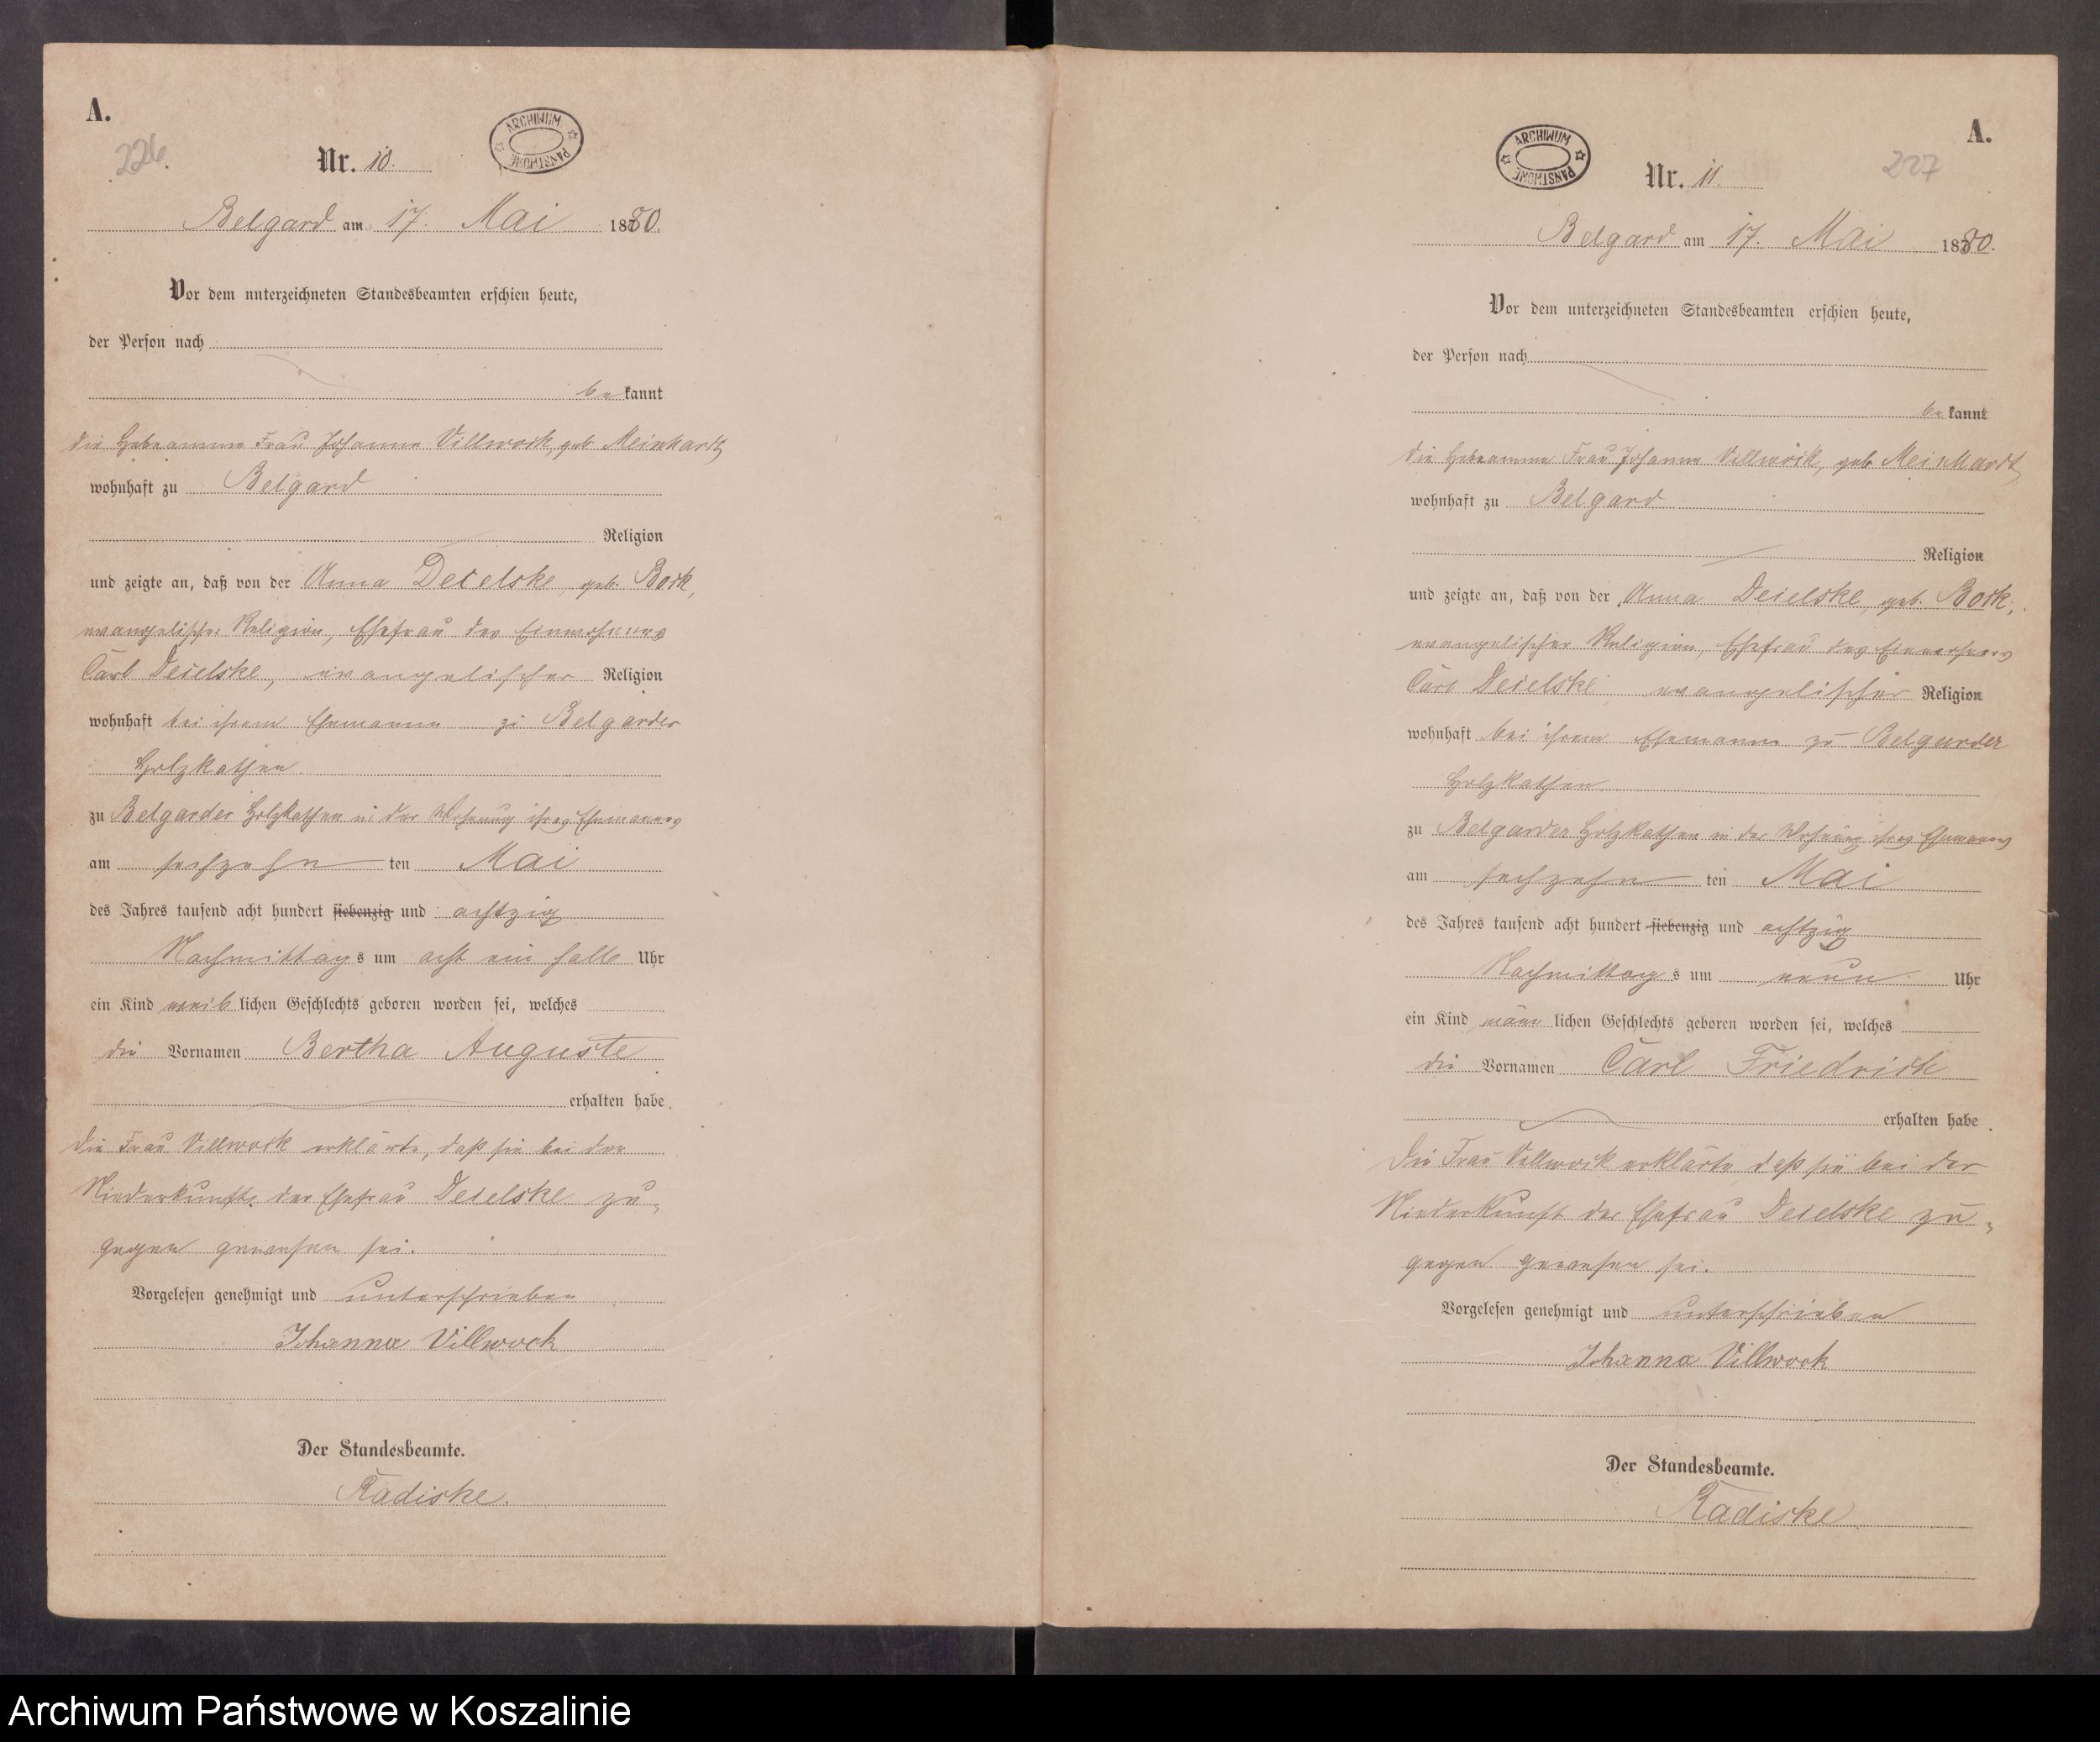 A.
226.
Nr. 10.
ARCHIWUM PAŃSTWOWE
Belgard am 17. Mai 1880.
Vor dem unterzeichneten Standesbeamten erschien heute,
der Person nach
be kannt
die Hebeamme Frau Johanna Villwock, geb Meinhardt,
wohnhaft zu Belgard
Religion
und zeigte an, daß von der Anna Deielske, geb. Bork,
evangelischer Religion, Ehefrau des Einwohners
Carl Deielske, evangelischer Religion
wohnhaft bei ihrem Ehemanne zu Belgarder
Holzkathen.
zu Belgarder Holzkathen in der Wohnung ihres Ehemannes
am sechzehn ten Mai
des Jahres tausend acht hundert siebenzig und achtzig
Nachmittags um acht ein halb Uhr
ein Kind weib lichen Geschlechts geboren worden sei, welches
die Vornamen Bertha Auguste
erhalten habe.
Die Frau Villwock erklärte, daß sie bei der
Niederkunft der Ehefrau Deielske zu-
gegen gewesen sei.
Vorgelesen genehmigt und unterschrieben
Johanna Villwock
Der Standesbeamte.
Radiske.
A.
227
Nr. 11.
ARCHIWUM PAŃSTWOWE
Belgard am 17. Mai 1880.
Vor dem unterzeichneten Standesbeamten erschien heute,
der Person nach
be kannt
die Hebeamme Frau Johanna Villwock, geb Meinhardt,
wohnhaft zu Belgard
Religion
und zeigte an, daß von der Anna Deielske, geb. Bork,
evangelischer Religion, Ehefrau des Einwohners
Carl Deielske evangelischer Religion
wohnhaft bei ihrem Ehemanne zu Belgarder
Holzkathen.
zu Belgarder Holzkathen in der Wohnung ihres Ehemannes
am sechzehn ten Mai
des Jahres tausend acht hundert siebenzig und achtzig
Nachmittags um neun Uhr
ein Kind männ lichen Geschlechts geboren worden sei, welches
die Vornamen Carl Friedrich
erhalten habe.
Die Frau Villwock erklärte, daß sie bei der
Niederkunft der Ehefrau Deielske zu-
gegen gewesen sei.
Vorgelesen genehmigt und unterschrieben
Johanna Villwock
Der Standesbeamte.
Radiske
Archiwum Państwowe w Koszalinie